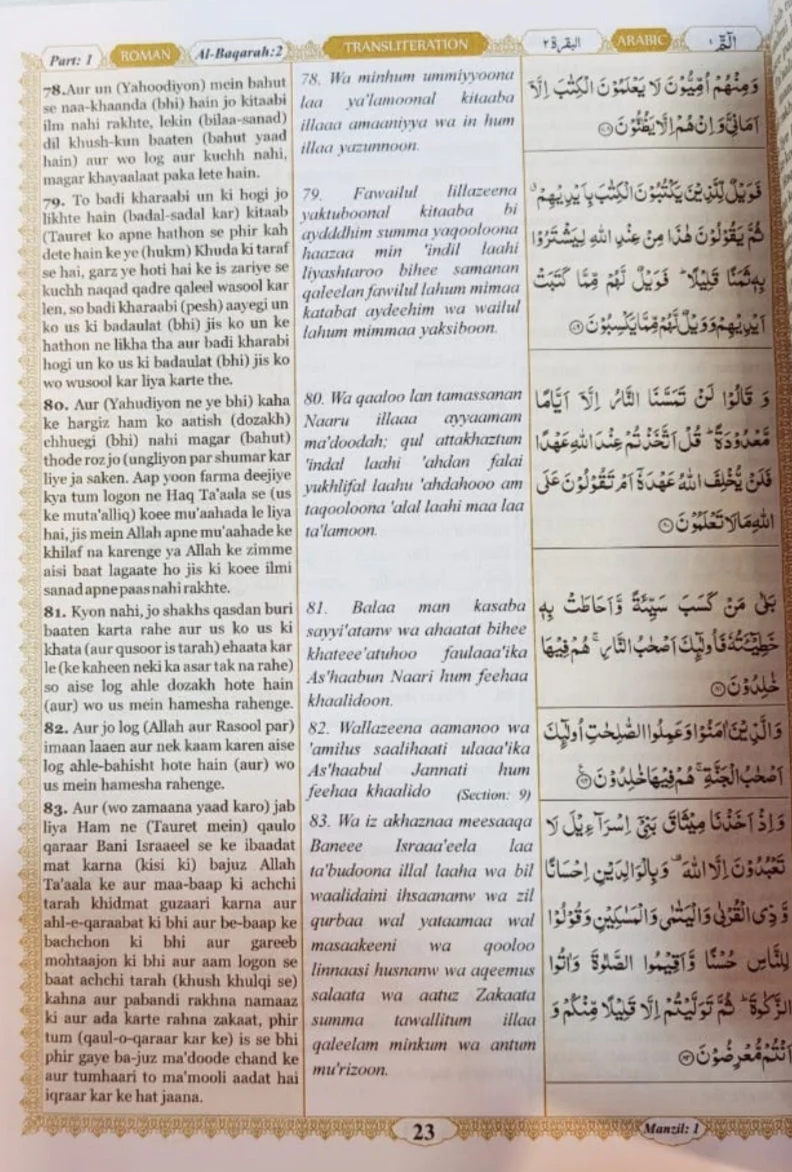 Part: 1
ROMAN
Al-Baqarah:2
TRANSLITERATION
البقرة ٢
ARABIC
الٓمّٓ ١
78.Aur un (Yahoodiyon) mein bahut
se naa-khaanda (bhi) hain jo kitaabi
ilm nahi rakhte, lekin (bilaa-sanad)
dil khush-kun baaten (bahut yaad
hain) aur wo log aur kuchh nahi,
magar khayaalaat paka lete hain.
79. To badi kharaabi un ki hogi jo
likhte hain (badal-sadal kar) kitaab
(Tauret ko apne hathon se phir kah
dete hain ke ye (hukm) Khuda ki taraf
se hai, garz ye hoti hai ke is zariye se
kuchh naqad qadre qaleel wasool kar
len, so badi kharaabi (pesh) aayegi un
ko us ki badaulat (bhi) jis ko un ke
hathon ne likha tha aur badi kharabi
hogi un ko us ki badaulat (bhi) jis ko
wo wusool kar liya karte the.
80. Aur (Yahudiyon ne ye bhi) kaha
ke hargiz ham ko aatish (dozakh)
chhuegi (bhi) nahi magar (bahut)
thode roz jo (ungliyon par shumar kar
liye ja saken. Aap yoon farma deejiye
kya tum logon ne Haq Ta'aala se (us
ke muta'alliq) koee mu'aahada le liya
hai, jis mein Allah apne mu'aahade ke
khilaf na karenge ya Allah ke zimme
aisi baat lagaate ho jis ki koee ilmi
sanad apne paas nahi rakhte.
81. Kyon nahi, jo shakhs qasdan buri
baaten karta rahe aur us ko us ki
khata (aur qusoor is tarah) ehaata kar
le (ke kaheen neki ka asar tak na rahe)
so aise log ahle dozakh hote hain
(aur) wo us mein hamesha rahenge.
82. Aur jo log (Allah aur Rasool par)
imaan laaen aur nek kaam karen aise
log ahle-bahisht hote hain (aur) wo
us mein hamesha rahenge.
83. Aur (wo zamaana yaad karo) jab
liya Ham ne (Tauret mein) qaulo
qaraar Bani Israaeel se ke ibaadat
mat karna (kisi ki) bajuz Allah
Ta'aala ke aur maa-baap ki achchi
tarah khidmat guzaari karna aur
ahl-e-qaraabat ki bhi aur be-baap ke
bachchon ki bhi aur gareeb
mohtaajon ki bhi aur aam logon se
baat achchi tarah (khush khulqi se)
kahna aur pabandi rakhna namaaz
ki aur ada karte rahna zakaat, phir
tum (qaul-o-qaraar kar ke) is se bhi
phir gaye ba-juz ma'doode chand ke
aur tumhaari to ma'mooli aadat hai
iqraar kar ke hat jaana.
78. Wa minhum ummiyyoona
laa ya'lamoonal kitaaba
illaaa amaaniyya wa in hum
illaa yazunnoon.
79. Fawailul lillazeena
yaktuboonal kitaaba bi
aydddhim summa yaqooloona
haazaa min 'indil laahi
liyashtaroo bihee samanan
qaleelan fawilul lahum mimaa
katabat aydeehim wa wailul
lahum mimmaa yaksiboon.
80. Wa qaaloo lan tamassanan
Naaru illaaa ayyaamam
ma'doodah; qul attakhaztum
'indal laahi 'ahdan falai
yukhlifal laahu 'ahdahooo am
taqooloona 'alal laahi maa laa
ta'lamoon.
81. Balaa man kasaba
sayyi'atanw wa ahaatat bihee
khateee'atuhoo faulaaa'ika
As'haabun Naari hum feehaa
khaalidoon.
82. Wallazeena aamanoo wa
'amilus saalihaati ulaaa'ika
As'haabul Jannati hum
feehaa khaalido (Section: 9)
83. Wa iz akhaznaa meesaaqa
Baneee Israaa'eela laa
ta'budoona illal laaha wa bil
waalidaini ihsaananw wa zil
qurbaa wal yataamaa wal
masaakeeni wa qooloo
linnaasi husnanw wa aqeemus
salaata wa aatuz Zakaata
summa tawallitum illaa
qaleelam minkum wa antum
mu'rizoon.
وَمِنْهُمْ اُمِّيُّوْنَ لَا يَعْلَمُوْنَ الْكِتٰبَ اِلَّاۤ
اَمَانِيَّ وَاِنْ هُمْ اِلَّا يَظُنُّوْنَ ۝۷۸
فَوَيْلٌ لِّلَّذِيْنَ يَكْتُبُوْنَ الْكِتٰبَ بِاَيْدِيْهِمْ ۗ
ثُمَّ يَقُوْلُوْنَ هٰذَا مِنْ عِنْدِ اللّٰهِ لِيَشْتَرُوْا
بِهٖ ثَمَنًا قَلِيْلًا ؕ فَوَيْلٌ لَّهُمْ مِّمَّا كَتَبَتْ
اَيْدِيْهِمْ وَوَيْلٌ لَّهُمْ مِّمَّا يَكْسِبُوْنَ ۝۷۹
وَ قَالُوْا لَنْ تَمَسَّنَا النَّارُ اِلَّاۤ اَيَّامًا
مَّعْدُوْدَةً ؕ قُلْ اَتَّخَذْتُمْ عِنْدَ اللّٰهِ عَهْدًا
فَلَنْ يُّخْلِفَ اللّٰهُ عَهْدَهٗۤ اَمْ تَقُوْلُوْنَ عَلَى
اللّٰهِ مَا لَا تَعْلَمُوْنَ ۝۸۰
بَلٰى مَنْ كَسَبَ سَيِّئَةً وَّاَحَاطَتْ بِهٖ
خَطِيْٓئَتُهٗ فَاُولٰٓئِكَ اَصْحٰبُ النَّارِ ۚ هُمْ فِيْهَا
خٰلِدُوْنَ ۝۸۱
وَالَّذِيْنَ اٰمَنُوْا وَعَمِلُوا الصّٰلِحٰتِ اُولٰٓئِكَ
اَصْحٰبُ الْجَنَّةِ ۚ هُمْ فِيْهَا خٰلِدُوْنَ ۝۸۲
وَاِذْ اَخَذْنَا مِيْثَاقَ بَنِيْٓ اِسْرَآءِيْلَ لَا
تَعْبُدُوْنَ اِلَّا اللّٰهَ ۫ وَبِالْوَالِدَيْنِ اِحْسَانًا
وَّذِي الْقُرْبٰى وَالْيَتٰمٰى وَالْمَسٰكِيْنِ وَقُوْلُوْا
لِلنَّاسِ حُسْنًا وَّاَقِيْمُوا الصَّلٰوةَ وَاٰتُوا
الزَّكٰوةَ ؕ ثُمَّ تَوَلَّيْتُمْ اِلَّا قَلِيْلًا مِّنْكُمْ وَ
اَنْتُمْ مُّعْرِضُوْنَ ۝۸۳
23
Manzil: 1